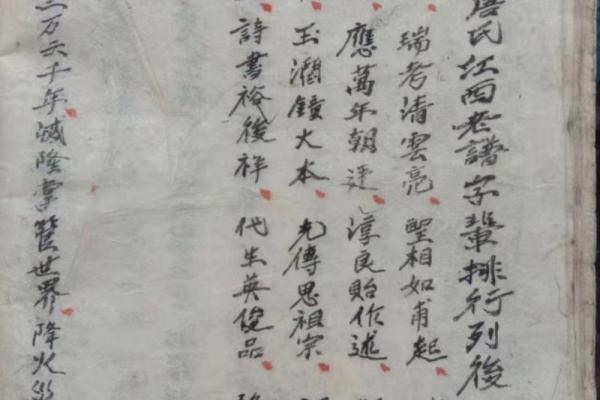 唐氏江西老譜字輩排行列後
瑞考清雲亮 聖相如甫起
應萬年朝廷 淳良貽作述
玉潤鐘大本 光傳思祖宗
詩書裕後祥 代生英俊品
三万六千年滅隆掌管世界降火災